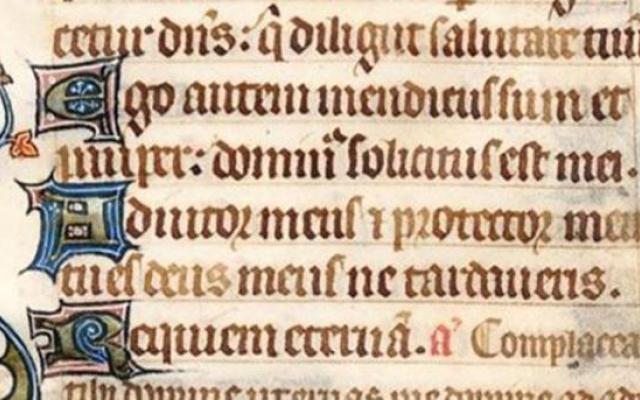 cetur dn̄s: q̄ diligūt salutare tuū
Ego autem mendicus sum et
pauper: domin̄ solicitus est mei.
Adiutor meus ⁊ protector meu
tu es deus meus ne tardaueris.
Requiem eternā. a᷎ Complacea